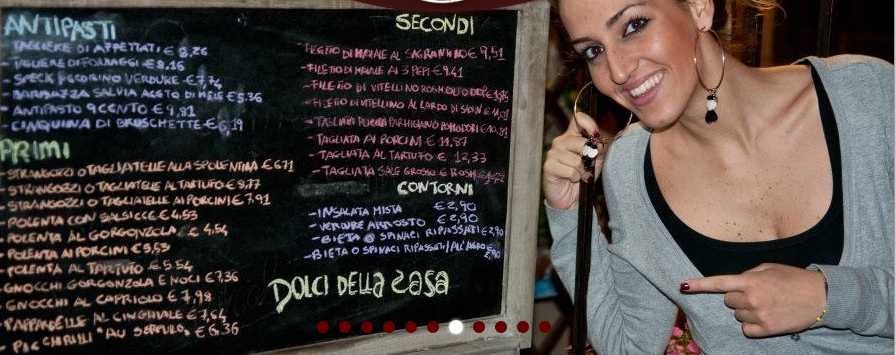 ANTIPASTI
TAGLIERE DI AFFETTATI € 8,26
TAGLIERE DI FORMAGGI € 8,16
- SPECK PECORINO VERDURE € 7,74
BARBAZZA SALVIA ACETO DI MELE € 5,36
- ANTIPASTO 9CENTO € 9,81
- CINQUINA DI BRUSCHETTE € 6,19
PRIMI
- STRANGOZZI O TAGLIATELLE ALLA SPOLENTINA € 6,71
- STRANGOZZI O TAGLIATELLE AL TARTUFO € 9,77
- STRANGOZZI O TAGLIATELLE AI PORCINI € 7,91
- POLENTA CON SALSICCE € 4,53
- POLENTA AL GORGONZOLA € 4,54
- POLENTA AI PORCINI € 5,53
- POLENTA AL TARTUFO € 5,54
GNOCCHI GORGONZOLA E NOCI € 7,36
- GNOCCHI AL CAPRIOLO € 7,98
- PAPPARDELLE AL CINGHIALE € 7,64
- AU SERPULO € 6,36
SECONDI
- FILETTO DI MAIALE AL SAGRANTINO € 9,51
- FILETTO DI MAIALE AI 3 PEPI € 9,41
- FILETTO DI VITELLINO ROSM OLIO DOP
- FILETTO DI VITELLINO AL LARDO DI
- TAGLIATA RUCOLA PARMIGIANO POMODORI € 10,81
- TAGLIATA AI PORCINI € 11,87
- TAGLIATA AL TARTUFO € 12,33
- TAGLIATA SALE GROSSO E ROSM
CONTORNI
- INSALATA MISTA € 2,90
- VERDURE ARROSTO € 2,90
- BIETA O SPINACI RIPASSATI € 2,90
- BIETA O SPINACI RIPASSATI ALL'AGRO € 2,90
DOLCI DELLA CASA